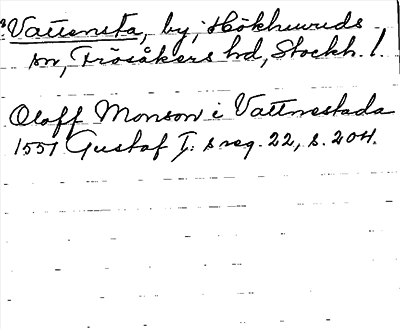 Vattensta, by, Hökhuvuds
sn, Frösåkers hd, Stockh. l.
Oloff Monson i Vattnestada
1551 Gustaf I:s reg. 22, s. 204.